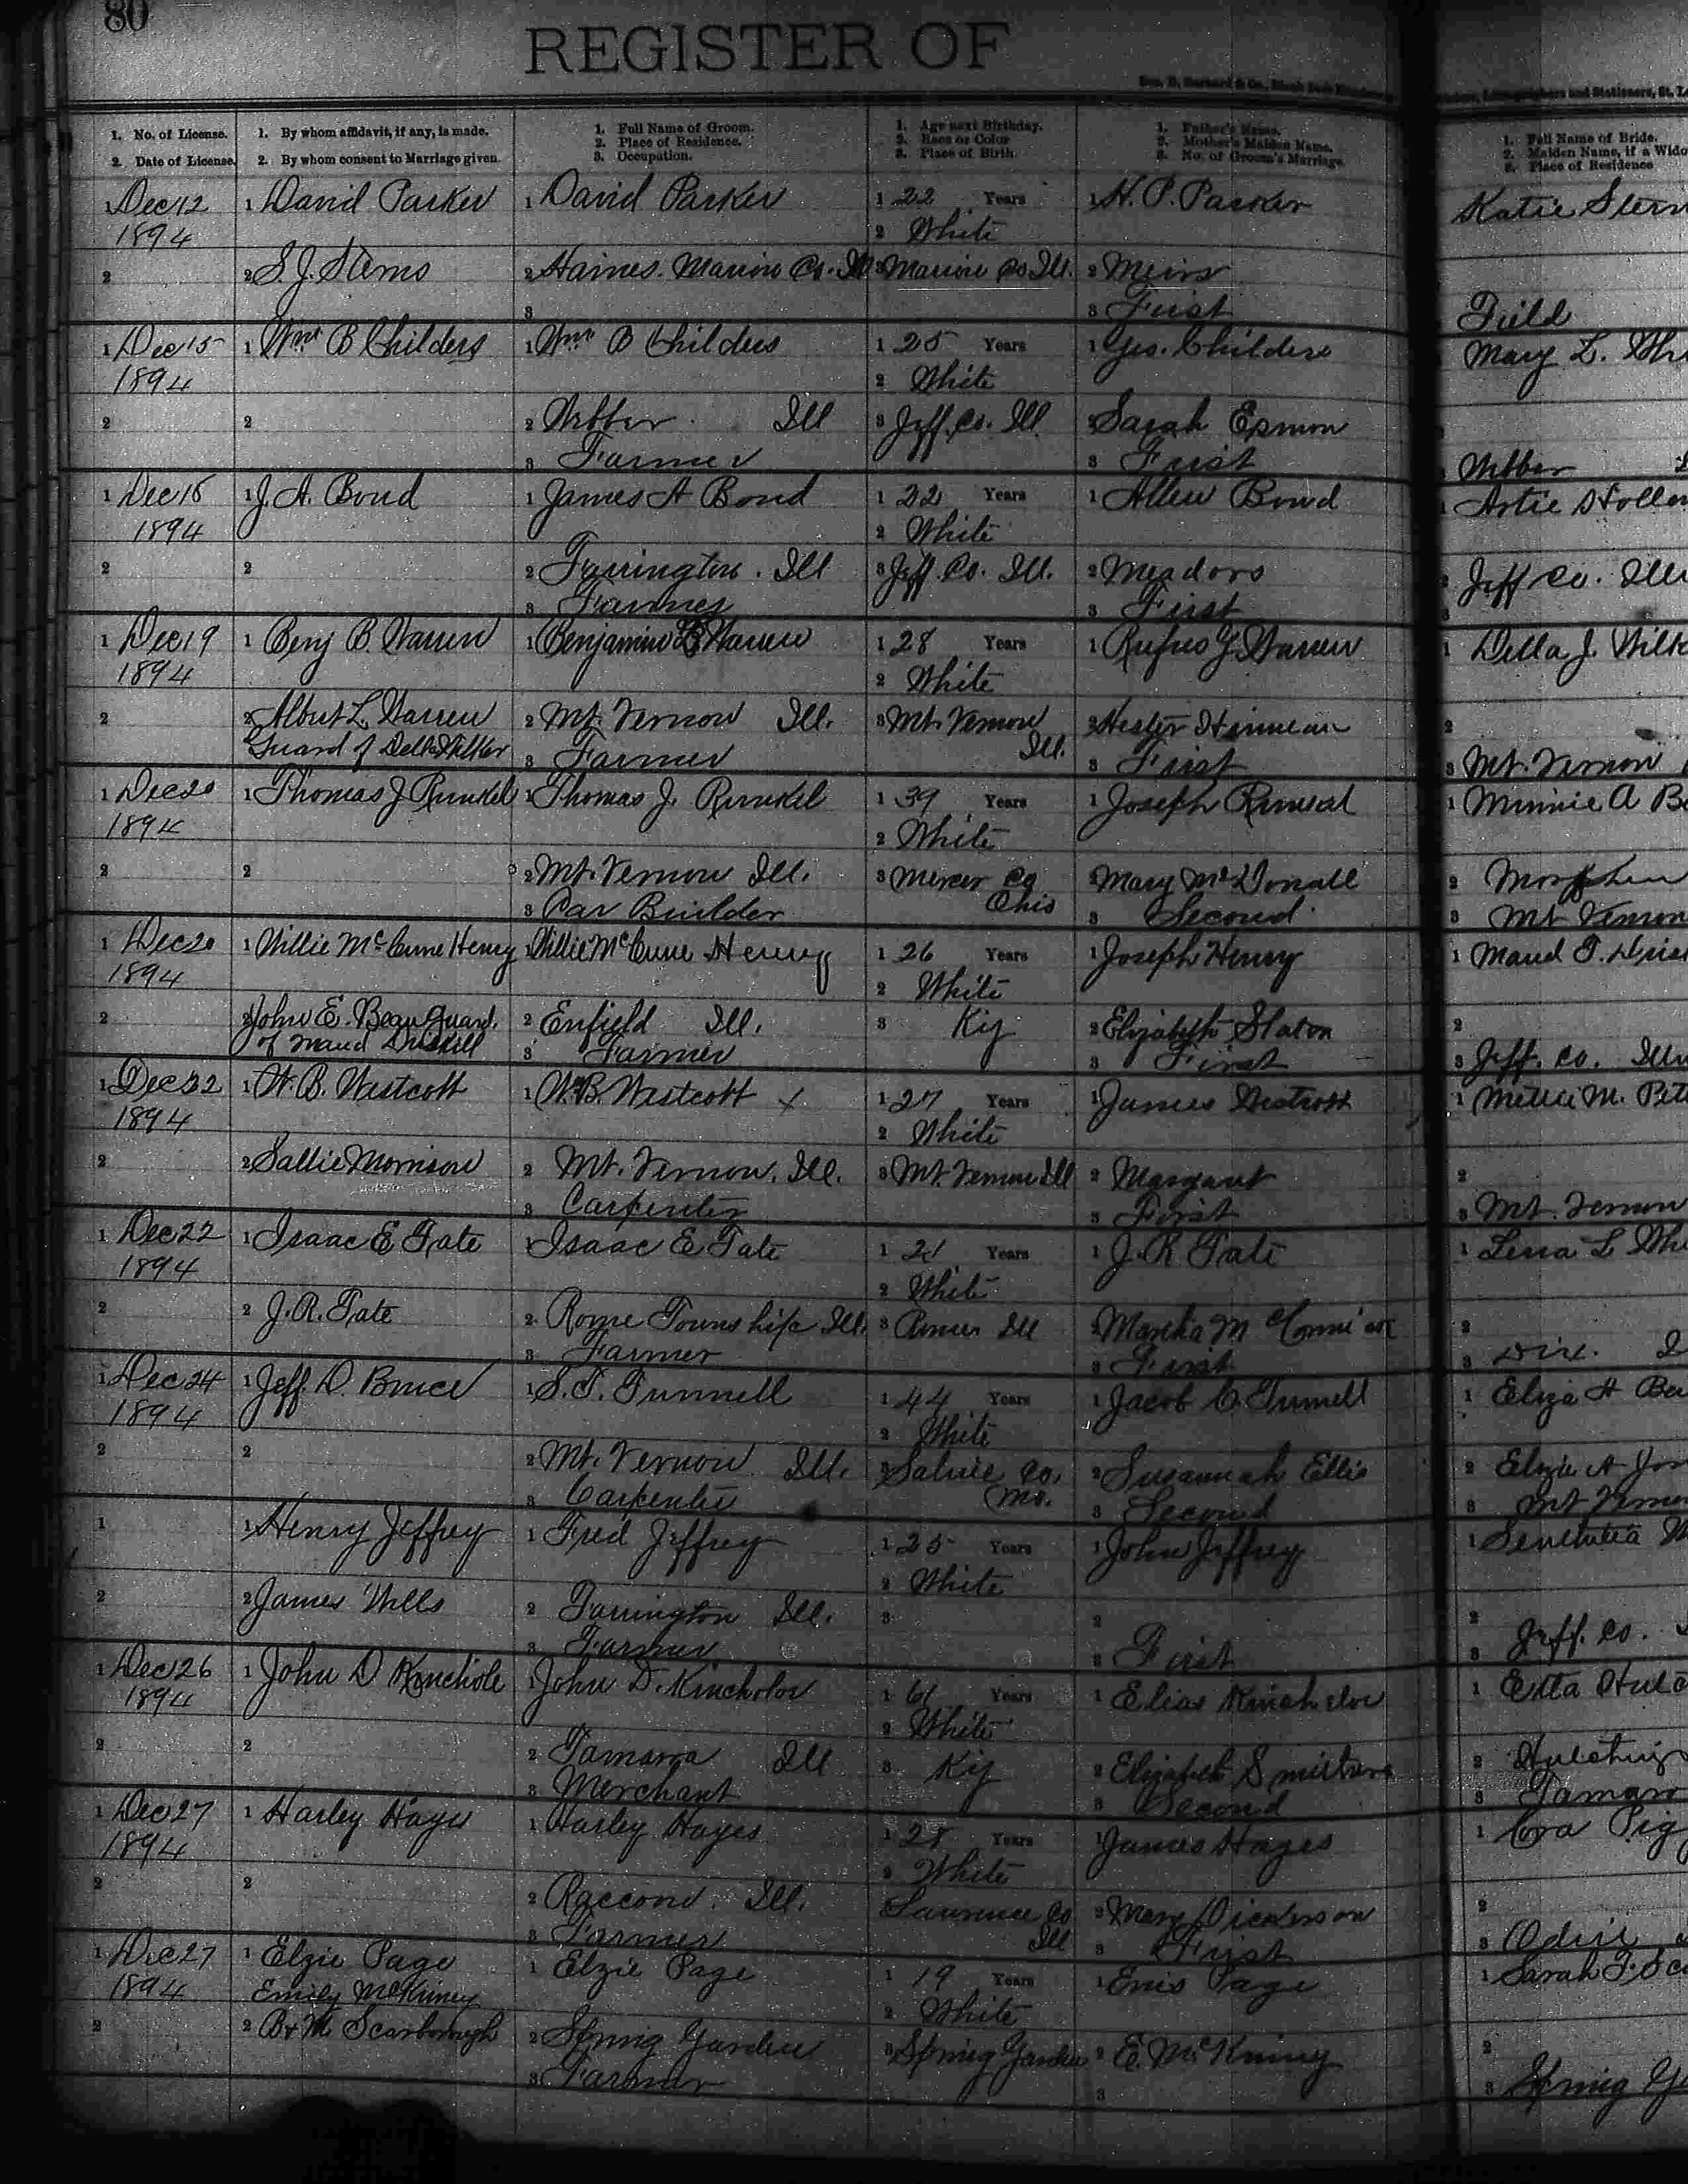 80
REGISTER OF
1. No. of License.
2. Date of License.
1. By whom affidavit, if any, is made.
2. By whom consent to Marriage given.
1. Full Name of Groom.
2. Place of Residence.
3. Occupation.
1. Age next Birthday.
2. Race or Color
3. Place of Birth
1. Father's Name.
2. Mother's Maiden Name.
3. No. of Groom's Marriage.
1. Full Name of Bride.
2. Maiden Name, if a Wido
3. Place of Residence
1 Dec 12 1 David Parker 1 David Parker 1 22 Years 1 H. P. Parker Katie
1894 2 White
2 2 S. J. 2 Haines. Marion Co. Ill 3 Marion Co Ill. 2
3 3 First Field
1 Dec 15 1 Wm B Childers 1 Wm B Childers 1 25 Years 1 Geo. Childers Mary L.
1894 2 White
2 2 2 Webber Ill 3 Jeff. Co. Ill. 2 Sarah
3 Farmer 3 First Webber
1 Dec 18 1 J. A. Bond 1 James A Bond 1 22 Years 1 Allen Bond 1 Artie
1894 2 White
2 2 2 Farrington. Ill 3 Jeff. Co. Ill. 2 Meadors 2 Jeff Co. Ill
3 Farmer 3 First 3
1 Dec 19 1 Benj B. Warren 1 Benjamin B Warren 1 28 Years 1 Rufus Y. Warren 1 Della J.
1894 2 White
2 2 Albert L. Warren 2 Mt. Vernon Ill. 3 Mt. Vernon 2 Hester 2
Guard of Della 3 Farmer Ill. 3 First 3 Mt. Vernon
1 Dec 20 1 Thomas J 1 Thomas J. 1 39 Years 1 Joseph 1 Minnie A
1894 2 White
2 2 2 Mt. Vernon Ill. 3 Mercer Co 2 Mary McDonall 2
3 Car Builder Ohio 3 Second 3 Mt Vernon
1 Dec 20 1 Willie McCune Henry 1 Willie McCune Henry 1 26 Years 1 Joseph Henry 1 Maud
1894 2 White
2 2 John E. guard. 2 Enfield Ill. 3 Ky 2 Elizabeth Slaton 2
of Maud 3 Farmer 3 First 3 Jeff. Co. Ill
1 Dec 22 1 W. B. Westcott 1 W. B. Westcott x 1 27 Years 1 James Westcott 1 M.
1894 2 White
2 2 Sallie Morrison 2 Mt. Vernon. Ill. 3 Mt. Vernon Ill 2 Margaret 2
3 Carpenter 3 First 3 Mt. Vernon
1 Dec 22 1 Isaac E Tate 1 Isaac E Tate 1 21 Years 1 J. R Tate 1 L
1894 2 White
2 2 J. R. Tate 2 Rome Township Ill. 3 Ill 2 Martha 2
3 Farmer 3 First 3 Dix.
1 Dec 24 1 Jeff. D. Bruce 1 S. T. Tunnell 1 44 Years 1 Jacob C. Tunnell 1 Eliza H
1894 2 White
2 2 2 Mt. Vernon Ill. 3 Saline Co. 2 Susannah Ellis 2
3 Carpenter Mo. 3 Second 3 Mt Vernon
1 1 Henry Jeffrey 1 Fred Jeffrey 1 25 Years 1 John Jeffrey 1
2 White
2 2 James Wells 2 Farrington Ill. 3 2 2
3 Farmer 3 First 3 Jeff. Co.
1 Dec 26 1 John D 1 John D. Kincheloe 1 61 Years 1 Elias Kincheloe 1 Etta
1894 2 White
2 2 2 Tamaroa Ill 3 Ky 2 Elizabeth 2
3 Merchant 3 Second 3 Tamaro
1 Dec 27 1 Harley Hayes 1 Harley Hayes 1 28 Years 1 James Hayes 1 Cora Pig
1894 2 White
2 2 2 Raccoon. Ill. Lawrence Co 2 Mary Dickerson 2
3 Farmer Ill 3 First 3 Odin
1 Dec 27 1 Elzie Page 1 Elzie Page 1 19 Years 1 Enis Page 1 Sarah F. Sca
1894 Emily McKinney 2 White
2 2 Scarborough 2 Spring Garden 3 Spring Garden 2 E. McKinny 2
3 Farmer 3 3 Spring G